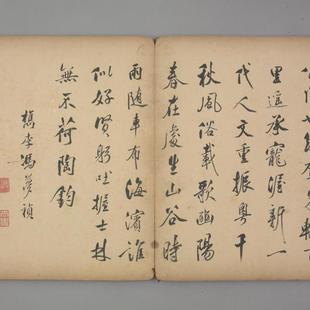 里遥承寵渥新一
代人文重振粤千
秋風俗載歌豳陽
春在處生山谷時
雨隨車布海濱誰
似好賢躬吐握士林
無不荷陶鈞
檇李馮夢禎